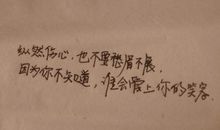 纵然伤心,也不要愁眉不展,
因为你不知道,谁会爱上你的笑容